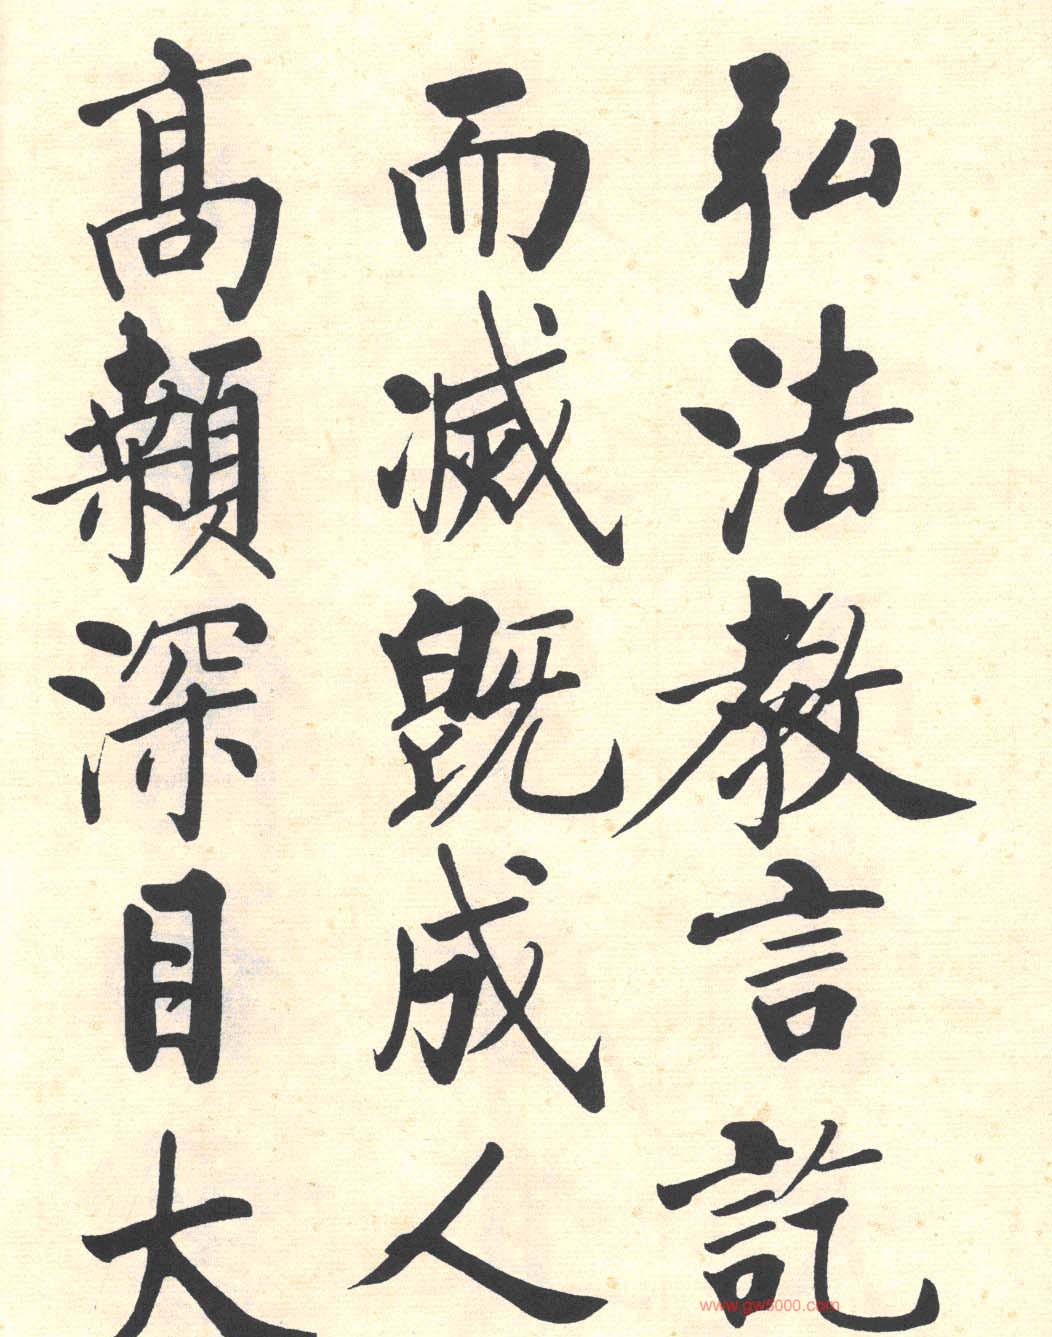 弘法教言訖
而滅既成人
高顙深目大
www.gw5000.com